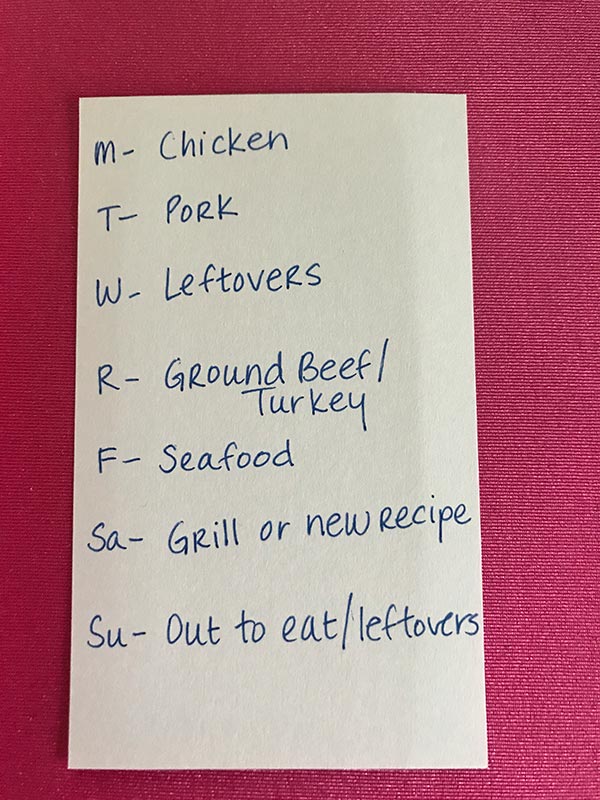 M- Chicken
T- Pork
W- Leftovers
R- Ground Beef/
Turkey
F- Seafood
Sa- Grill or new recipe
Su- Out to eat/leftovers